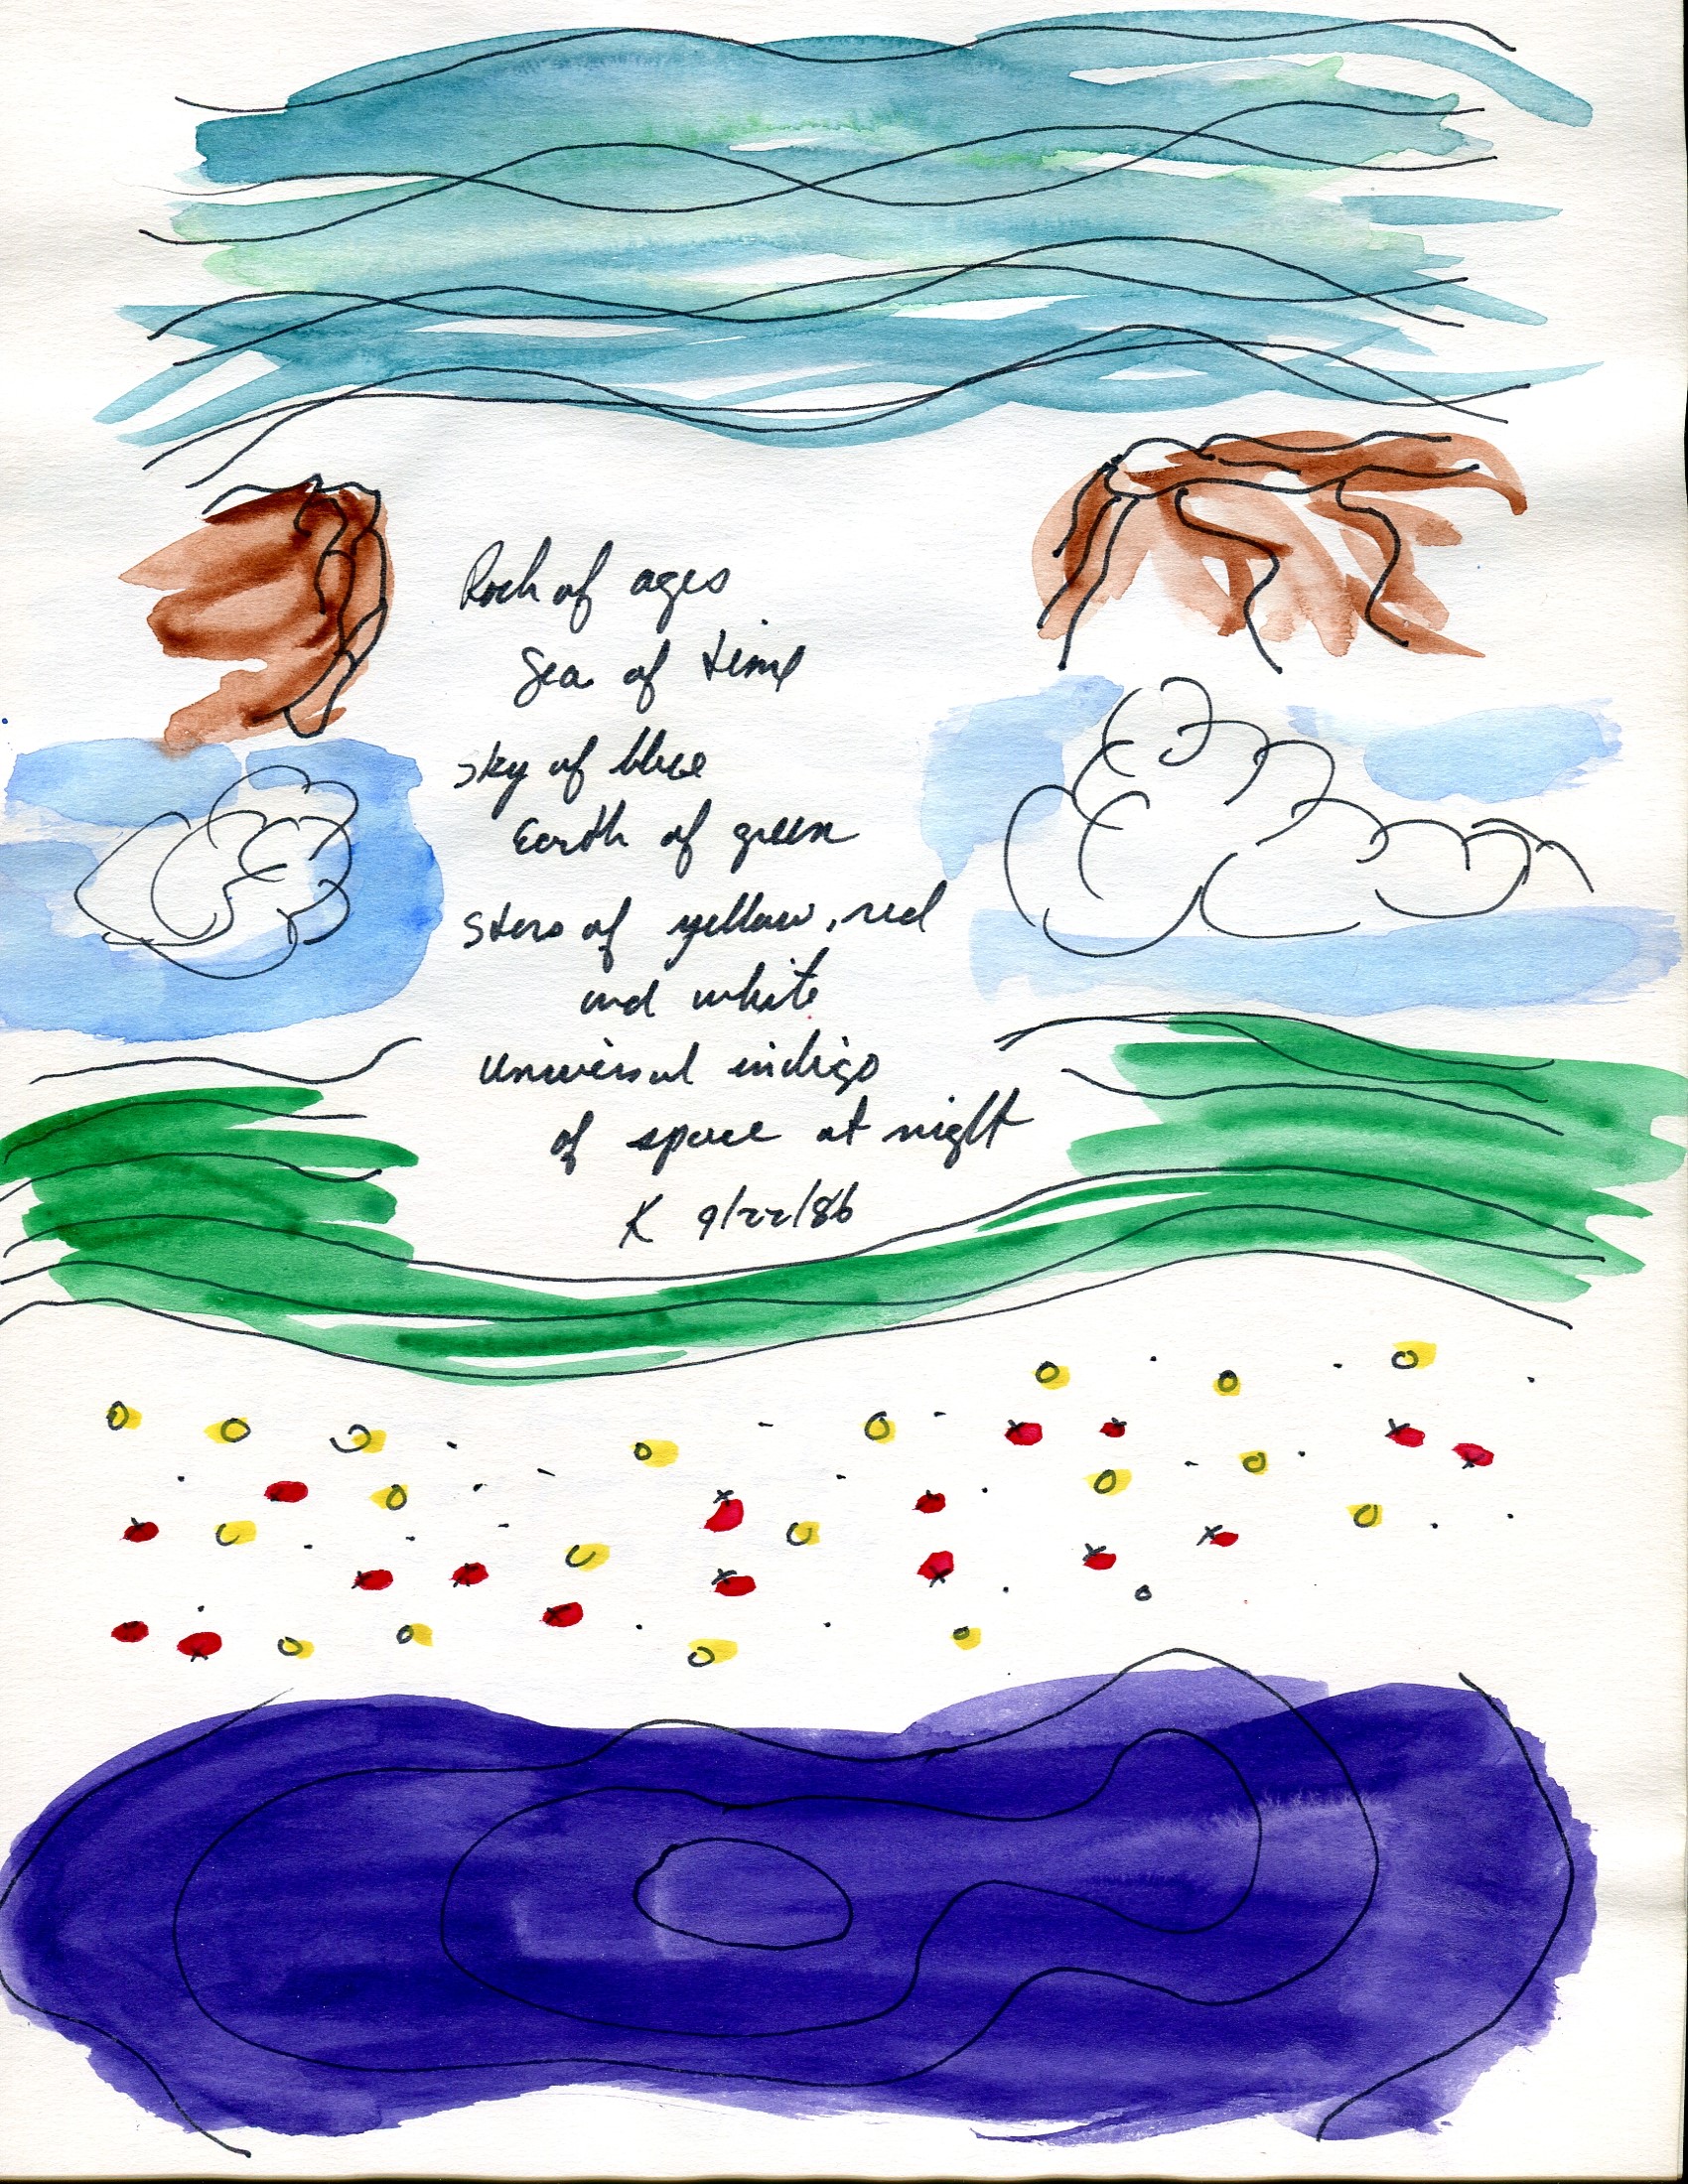 Rock of ages
Sea of time
Sky of blue
Earth of green
Stars of yellow, red
and white
Universal indigo
of space at night
K 9/22/86